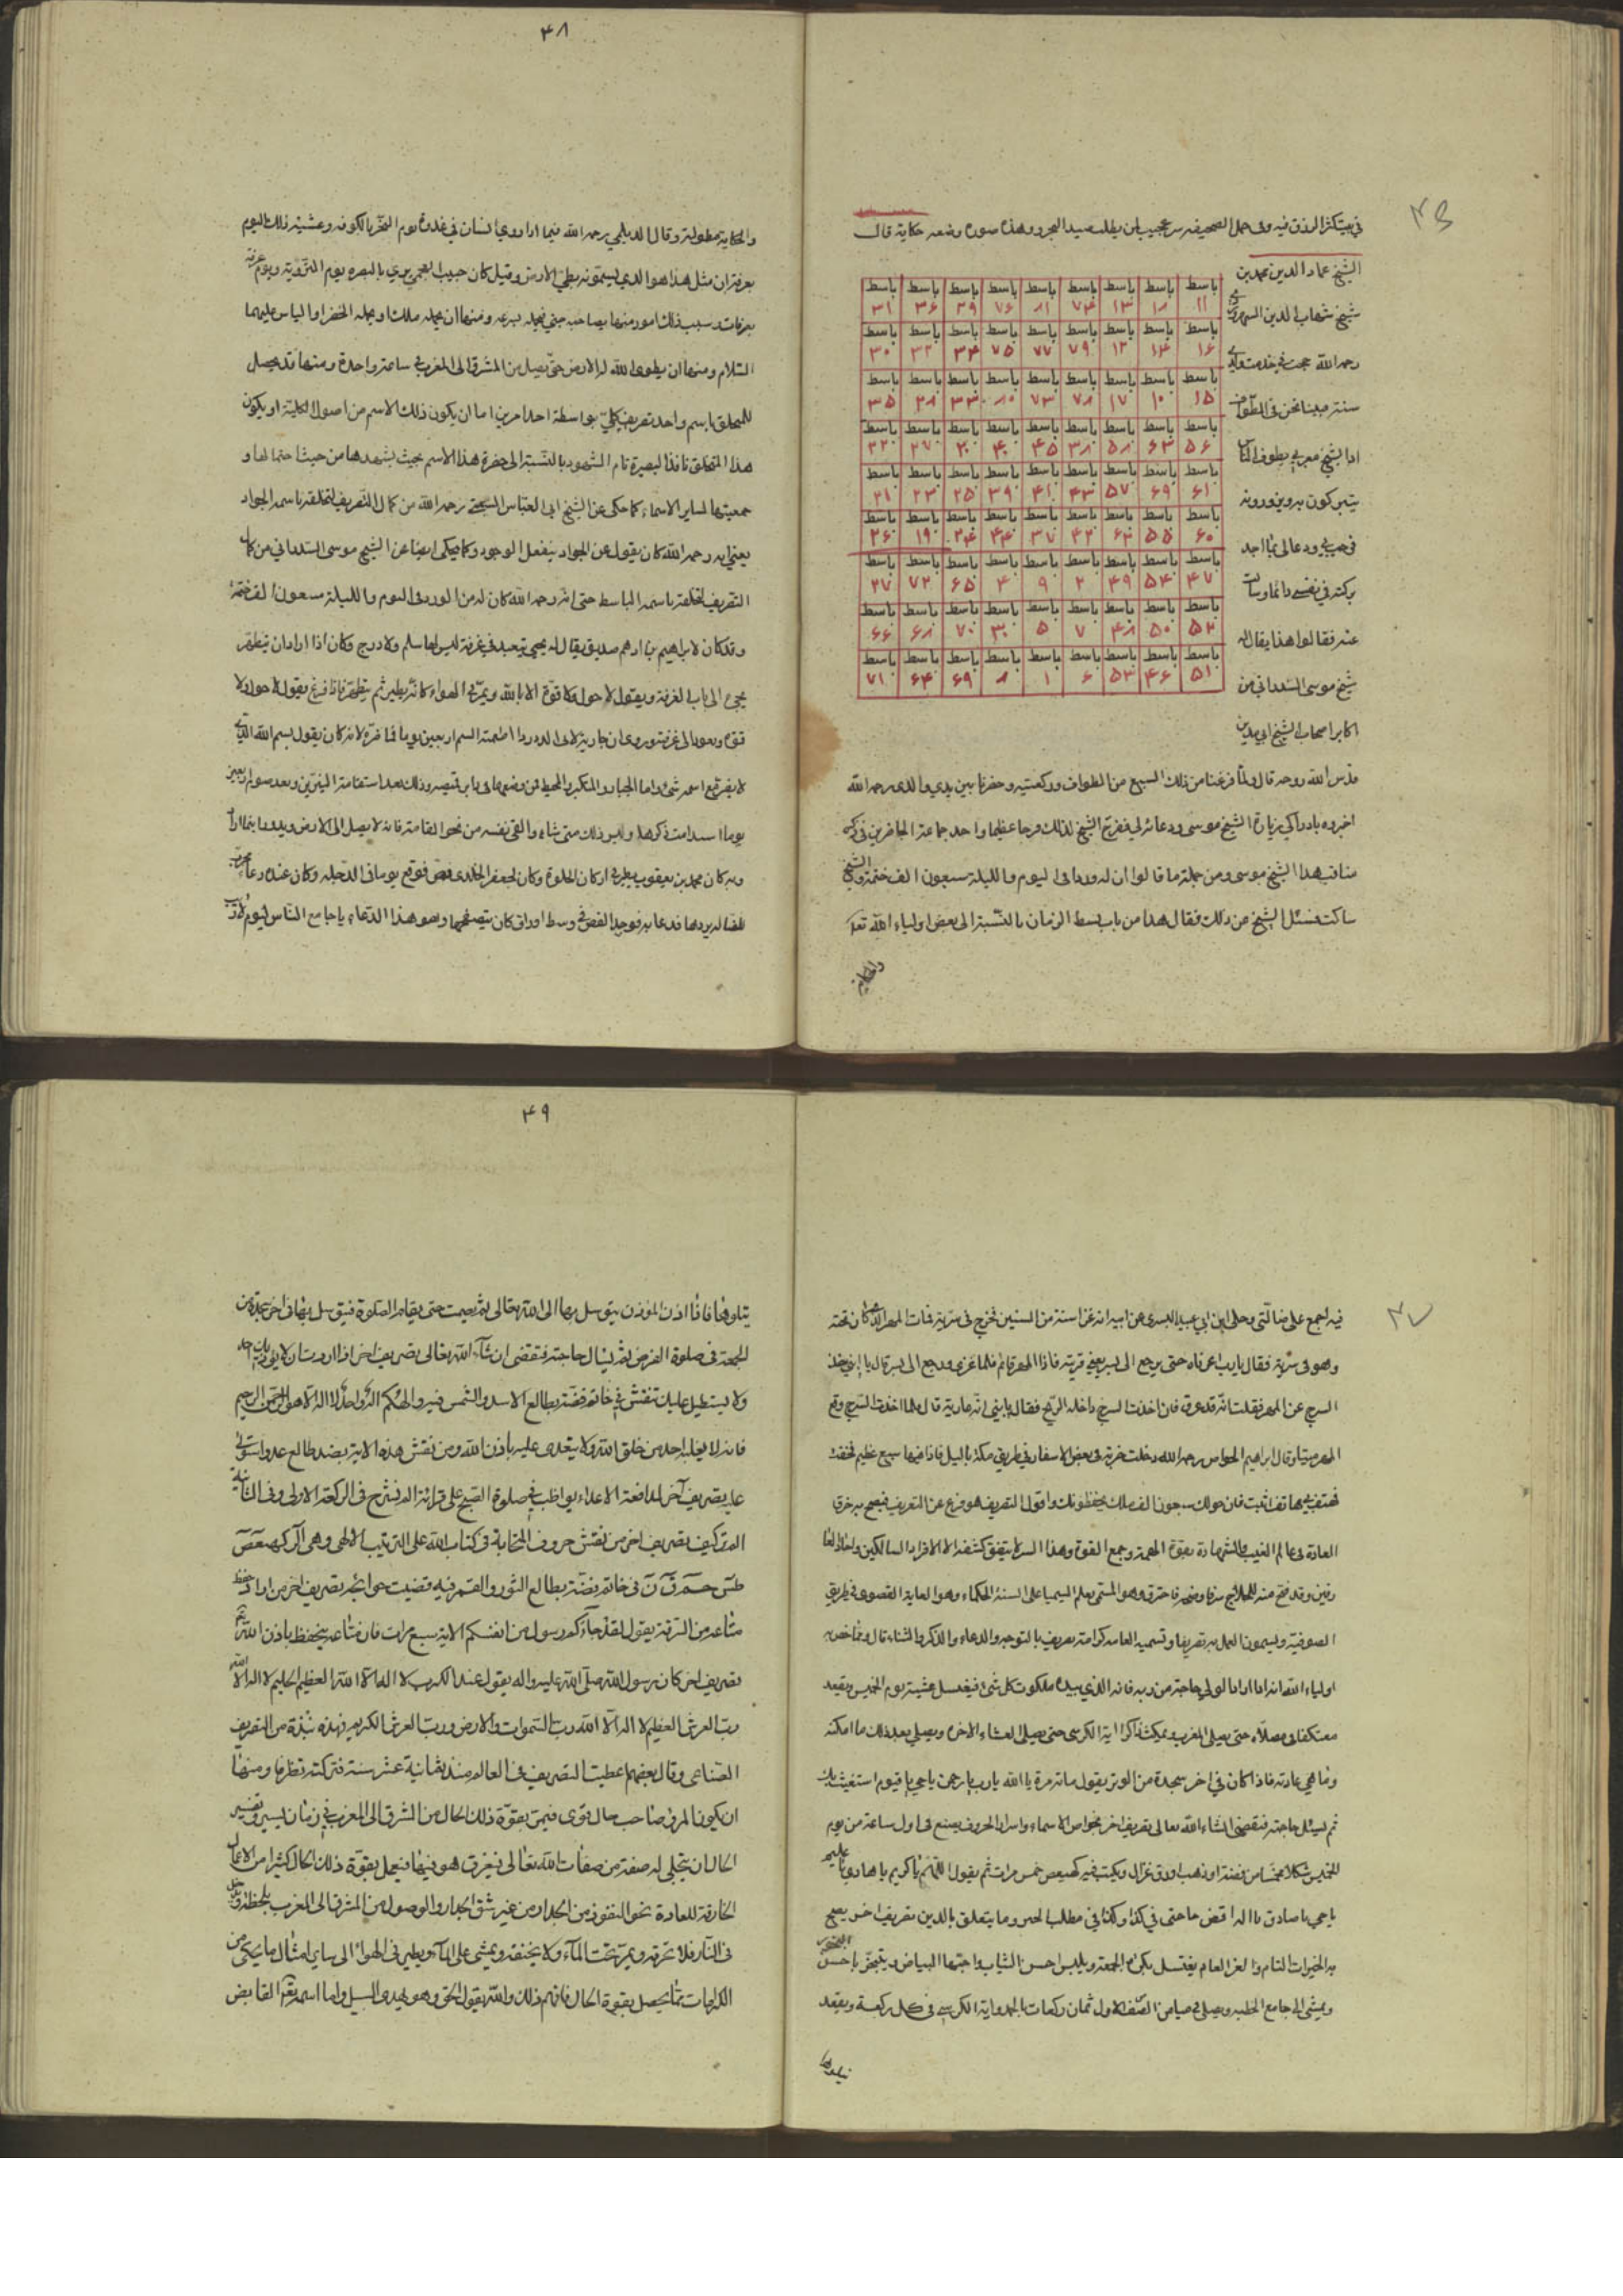 في بيت كثر الرزق فيه وفى حمل الصحيفه سر عجيب لمن يطلب صيد البحر وهذه صورة وضعه حكاية قال
الشيخ عماد الدين محمد بن
شيخ شهاب الدين السهروردي
رحمه الله حججت في خدمت والدي
سنة فبينا نحن في الطواف
اذا بشيخ مغربي يطوف الناس
يتبركون به ويزورونه
بركته في نفسي دائما وسألت
عنه فقالوا هذا يقال له
شيخ موسى السدراني من
اكابر اصحاب الشيخ ابي مدين
باسط باسط باسط باسط باسط باسط باسط باسط باسط
۱۱ ۱۸ ۱۳ ۷۴ ۸۱ ۷۶ ۲۹ ۳۶ ۳۱
باسط باسط باسط باسط باسط باسط باسط باسط باسط
۱۶ ۱۴ ۱۲ ۷۹ ۷۷ ۷۵ ۳۴ ۳۲ ۳۰
باسط باسط باسط باسط باسط باسط باسط باسط باسط
۱۵ ۱۰ ۱۷ ۷۸ ۷۳ ۸۰ ۳۳ ۲۸ ۳۵
باسط باسط باسط باسط باسط باسط باسط باسط باسط
۵۶ ۶۳ ۵۸ ۳۸ ۴۵ ۴۰ ۲۰ ۲۷ ۲۲
باسط باسط باسط باسط باسط باسط باسط باسط باسط
۶۱ ۶۹ ۵۷ ۴۳ ۴۱ ۳۹ ۲۵ ۲۳ ۲۱
باسط باسط باسط باسط باسط باسط باسط باسط باسط
۶۰ ۵۵ ۶۲ ۴۲ ۳۷ ۴۴ ۲۴ ۱۹ ۲۶
باسط باسط باسط باسط باسط باسط باسط باسط باسط
۴۷ ۵۴ ۴۹ ۲ ۹ ۴ ۶۵ ۷۲ ۲۷
باسط باسط باسط باسط باسط باسط باسط باسط باسط
۵۲ ۵۰ ۴۸ ۷ ۵ ۳ ۷۰ ۶۸ ۶۶
باسط باسط باسط باسط باسط باسط باسط باسط باسط
۵۱ ۴۶ ۵۳ ۶ ۱ ۸ ۶۹ ۶۴ ۷۱
قدس الله روحه قال ولما فرغنا من ذلك السبع من الطواف وركعتيه وحضرنا بين يدي والدى رحمه الله
اخبروه بادراكي زيارة الشيخ موسى ودعائه لي ففرح الشيخ لذلك فرحا عظيما واخذ جماعة الحاضرين في ذكر
مناقب هذا الشيخ موسى ومن جملة ما قالوا ان له وردا في اليوم والليلة سبعون الف ختمة والشيخ
ساكت فسئل الشيخ عن ذلك فقال هذا من باب بسط الزمان بالنسبة الى بعض اولياء الله تعالى
والحكاية
۴۸
والحكاية مطولة وقال الديلمي رحمه الله فيما اذا روي انسان في غدوة يوم النحر بالكوفه وعشية ذلك اليوم
بعرفة ان مثل هذا هو الذي يسمونه بطي الارض وقيل كان حبيب العجمي يري بالبصره يوم التروية ويوم عرفة
بعرفات وسبب ذلك امور منها يصاحبه جني يحمله بسرعه ومنها ان يحمله ملك او يحمله الخضر او الياس عليهما
السلام ومنها ان يطوى الله له الارض حتى يصل من المشرق الى المغرب في ساعة واحدة ومنها قد يحصل
للمتخلق باسم واحد تصريف كلي بواسطة احد امرين اما ان يكون ذلك الاسم من اصول الكلية او يكون
هذا المتخلق نافذ البصيرة تام الشهود بالنسبة الى حضرة هذا الاسم بحيث يشهدها من حيث اجتماعها و
جمعيتها لساير الاسماء كما حكى عن الشيخ ابي العباس السبتي رحمه الله من كمال التصريف لتخلقه باسم الجواد
يعني انه رحمه الله كان يقول عن الجواد ينفعل الوجود وكما يحكى ايضا عن الشيخ موسى السدراني من كمال
التصريف لتخلقه باسمه الباسط حتى انه رحمه الله كان له من الورد في اليوم والليلة سبعون الف ختمة
وقد كان لابراهيم بن ادهم صديق يقال له يحيى يتعبد في غرفة ليس لها سلم ولا درج وكان اذا اراد ان يتطهر
يجئ الى باب الغرفة ويقول لا حول ولا قوة الا بالله ويمر في الهواء كانه طير ثم يتطهر فاذا فرغ يقول لا حول ولا
قوة ويعود الى غرفته وروي ان جارية لابي الدرداء اطعمته السم اربعين يوما فما ضره لانه كان يقول بسم الله الذي
لا يضر مع اسمه شئ واما الجبار والمتكبر والمحيط وبعد صوم اربعين
يوما استدامت ذكرها متى شاء والقى نفسه من نحو القامة فانه لا يصل الى الارض
وبه كان محمد بن يعقوب يطير في اركان الخلوة وكان لجعفر الخلدى فص فوقع يوما في الدجلة وكان عنده دعاء مجرب
للضالة يردها فدعا به فوجد الفص في وسط اوراق كان يتصفحها وهو هذا الدعاء يا جامع الناس ليوم لا ريب
فيه اجمع على ضالتي وحكى ابن ابي عبيد البسرى عن ابيه انه غزا سنة من السنين فخرج في سرية فمات المهر الذي كان تحته
وهو في سرية فقال يا رب اعرناه حتى يرجع الى بسر يعني قريته فاذا المهر قائم فلما غزى ورجع الى بسر قال يا بني خذ
السرج عن المهر فقلت انه قد عرق فان اخذت السرج داخله الريح فقال يا بني انه عارية قال فلما اخذت السرج وقع
المهر ميتا وقال ابراهيم الخواص رحمه الله دخلت خربة في بعض الاسفار في طريق مكة بالليل فاذا فيها سبع عظيم فخفت
فهتف بي هاتف اثبت فان حولك سبعون الف ملك يحفظونك واقول التصريف هو فرع عن التعريف فيصح به خرق
العادة في عالم الغيب والشهادة بقوة الهمة وجمع القوة وهذا السر لا يتفق كشفه الا لافراد السالكين
وهو المسمى بعلم السيميا على السنة الحكماء وهو الغاية القصوى في طريق
الصوفية ويسمون العمل به تصريفا وتسميه العامه كرامة تصريف بالتوجه والدعاء والذكر والثناء قال
اولياء الله انه اذا اراد الولي حاجة من ربه فانه الذي بيده ملكوت كل شئ فيغتسل عشية يوم الخميس ويقعد
معتكفا في مصلاه حتى يصلي المغرب ويمكث ذاكرا اية الكرسي حتى يصلي العشاء الاخره ويصلي بعد ذلك ما امكنه
وما هي عادته فاذا كان في اخر سجدة من الوتر يقول مائة مرة يا الله يا رب يا رحمن يا حي يا قيوم استغيث بك
ثم ليسئل حاجته فتقضى انشاء الله تعالى تصريف اخر بخواص الاسماء واسرار الحروف يصنع في اول ساعة من يوم
الخميس شكلا مخمسا من فضة او ذهب او رق غزال ويكتب فيه كهيعص خمس مرات ثم يقول اللهم يا كريم يا هادي يا عليم
يا حي يا صادق يا اله اقض حاجتي في كذا وكذا في مطلب الحس وما يتعلق بالدين تصريف اخر يصح
به الخيرات التام والعز العام يغتسل بكرة الجمعة ويلبس احسن الثياب واحبها البياض ويتبخر باحسن البخور
ويمشي الى جامع الخطبه ويصلي في ميامن الصف الاول ثمان ركعات بالحمد واية الكرسي في كل ركعة ويقعد
يتلوها
۴۹
يتلوها فاذا اذن المؤذن يتوسل بها الى الله تعالى ثم يصمت حتى يقام الصلوة فيتوسل بها في اخر سجدة من
الجمعة في صلوة الفرض ثم يسال حاجته فتقضى ان شاء الله تعالى تصريف اخر اذا اردت ان لا يؤذيك احد
ولا يستطيل عليك تنقش في خاتم فضة بطالع الاسد والشمس فيه والهكم اله واحد لا اله الا هو الرحمن الرحيم
فانه لا يغلبه احد من خلق الله ولا يتعدى عليه باذن الله ومن نقش هذه الاية بضد طالع عدو استولى
عليه تصريف آخر لمدافعة الاعداء يواظب في صلوة الصبح على قرائة الم نشرح في الركعة الاولى وفي الثانية
الم تر كيف تصريف اخر من نقش حروف المتشابة في كتاب الله على الترتيب الالهي وهي الر كهيعص
طس حم ق ن في خاتم فضة بطالع الثور والقمر فيه قضيت حوائجه تصريف اخر من اراد حفظ
متاعه من السرقة يقول لقد جاءكم رسول من انفسكم الاية سبع مرات فان متاعه ينحفظ باذن الله
تصريف اخر كان رسول الله صلى الله عليه واله يقول عند الكرب لا اله الا الله العظيم الحليم لا اله الا الله
رب العرش العظيم لا اله الا الله رب السموات والارض ورب العرش الكريم فهذه نبذة من التصريف
الصناعي وقال بعضهم اعطيت التصريف في العالم منذ ثمانية عشر سنة فتركته تظرفا ومنها
ان يكون المرؤ صاحب حال قوى فيمر بقوة ذلك الحال من الشرق الى المغرب في زمان يسير وتفسير
الحال ان يتجلى له صفة من صفات الله تعالى فيغرق هو فيها فيعمل بقوة ذلك الحال كثيرا من الاعمال
الخارقة للعادة نحو النفوذ من الجدار من غير شق الجدار والوصول من المشرق الى المغرب بلحظة ودخل
في النار فلا تحرقه ويمر تحت الماء ولا يخنقه ويمشي على الماء ويطير في الهواء الى ساير امثال ما يحكى من
الكرامات مما يحصل بقوة الحال فافهم ذلك والله يقول الحق وهو يهدى السبيل واما اسمه تعالى القابض